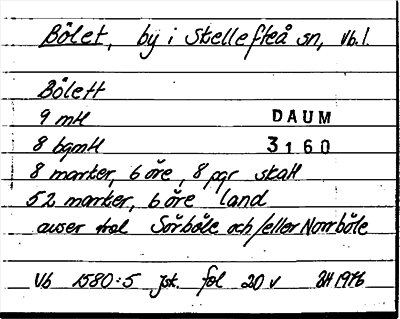 Bölet, by i Skellefteå sn, Vb.l.
Bölett
9 mtl
DAUM
8 bgmtl
3160
8 marker, 6 öre, 8 pgr skatt
52 marker, 6 öre land
avser Sörböle och/eller Norrböle
Vb 1580:5 jst. fol 20 v BH 1976